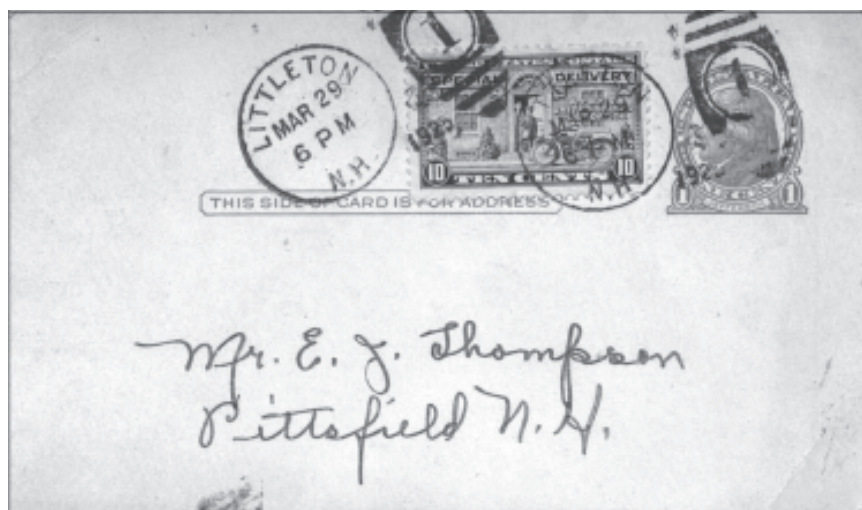 1
LITTLETON
MAR 29
6 PM
N.H.
SPECIAL DELIVERY
10 TEN CENTS 10
N.H.
1 1
THIS SIDE OF CARD IS FOR ADDRESS
Mr. E. J. Thompson
Pittsfield N. H.